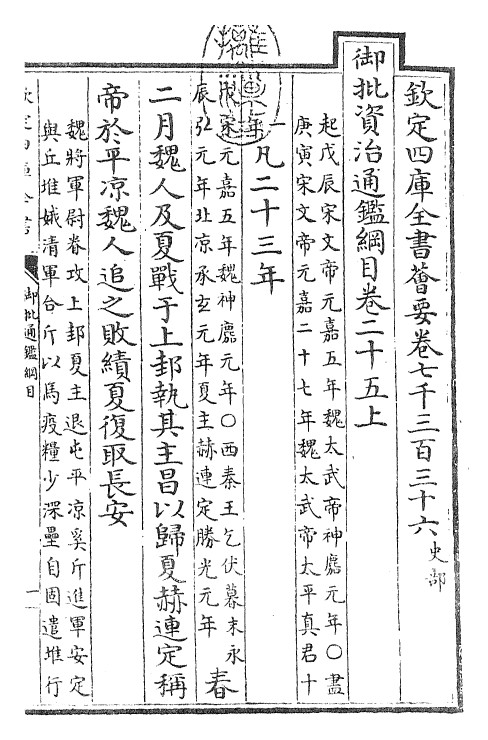 欽定四庫全書薈要卷七千三百三十六 史部
御批資治通鑑綱目卷二十五上
起戊辰宋文帝元嘉五年魏太武帝神䴥元年○盡
庚寅宋文帝元嘉二十七年魏太武帝太平真君十
一凡二十三年
宋元嘉五年魏神䴥元年○西秦王乞伏暮末永
辰弘元年北凉承玄元年夏主赫連定勝光元年
春
二月魏人及夏戰于上邽執其主昌以歸夏赫連定稱
帝於平凉魏人追之敗績夏復取長安
魏將軍尉眷攻上邽夏主退屯平凉奚斤進軍安定
與丘堆娥清軍合斤以馬疫糧少深壘自固遣堆行
欽定四庫全書
御批通鑑綱目
一